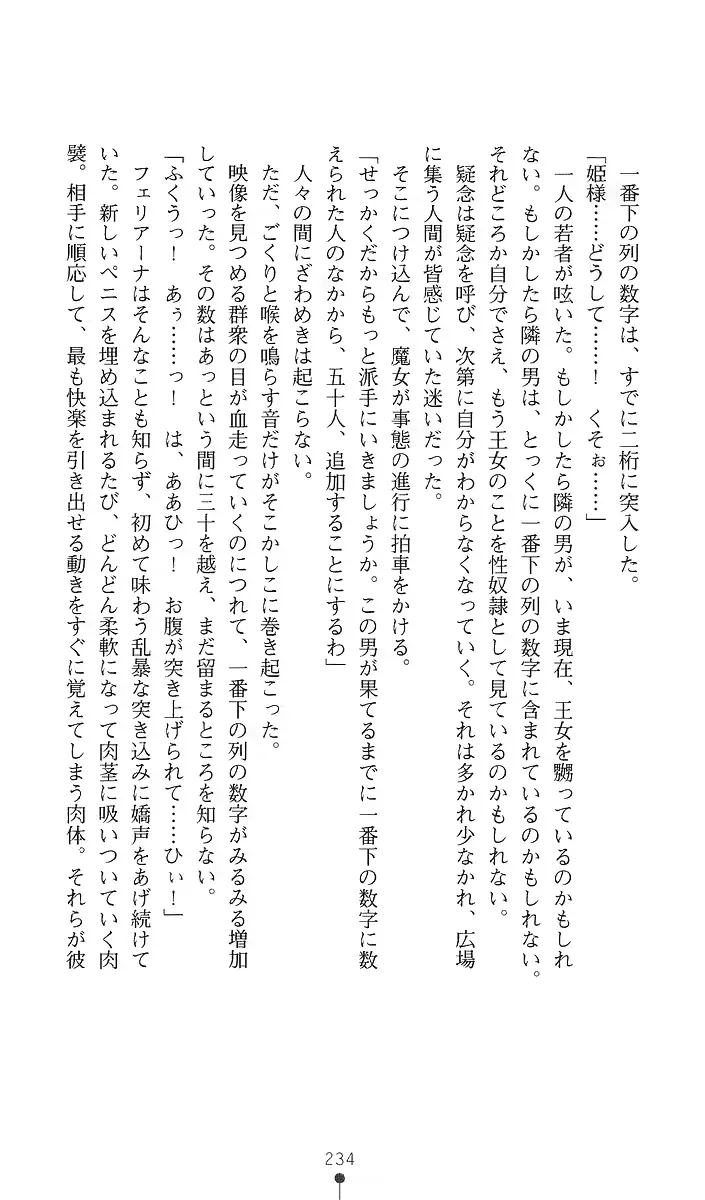 一番下の列の数字は、すでに二桁に突入した。
「姫様……どうして……！　くそぉ……」
一人の若者が呟いた。もしかしたら隣の男が、いま現在、王女を嬲っているのかもしれ
ない。もしかしたら隣の男は、とっくに一番下の列の数字に含まれているのかもしれない。
それどころか自分でさえ、もう王女のことを性奴隷として見ているのかもしれない。
疑念は疑念を呼び、次第に自分がわからなくなっていく。それは多かれ少なかれ、広場
に集う人間が皆感じていた迷いだった。
そこにつけ込んで、魔女が事態の進行に拍車をかける。
「せっかくだからもっと派手にいきましょうか。この男が果てるまでに一番下の数字に数
えられた人のなかから、五十人、追加することにするわ」
人々の間にざわめきは起こらない。
ただ、ごくりと喉を鳴らす音だけがそこかしこに巻き起こった。
映像を見つめる群衆の目が血走っていくのにつれて、一番下の列の数字がみるみる増加
していった。その数はあっという間に三十を越え、まだ留まるところを知らない。
「ふくうっ！　あぅ……っ！　は、ああひっ！　お腹が突き上げられて……ひぃ！」
フェリアーナはそんなことも知らず、初めて味わう乱暴な突き込みに嬌声をあげ続けて
いた。新しいペニスを埋め込まれるたび、どんどん柔軟になって肉茎に吸いついていく肉
襞。相手に順応して、最も快楽を引き出せる動きをすぐに覚えてしまう肉体。それらが彼
234